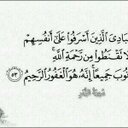 بَادِيَ الَّذِينَ أَسْرَفُوا عَلَىٰ أَنْفُسِهِمْ
لَا تَقْنَطُوا مِنْ رَحْمَةِ اللَّهِ
نُوبَ جَمِيعًا إِنَّهُ هُوَ الْغَفُورُ الرَّحِيمُ ٥٣